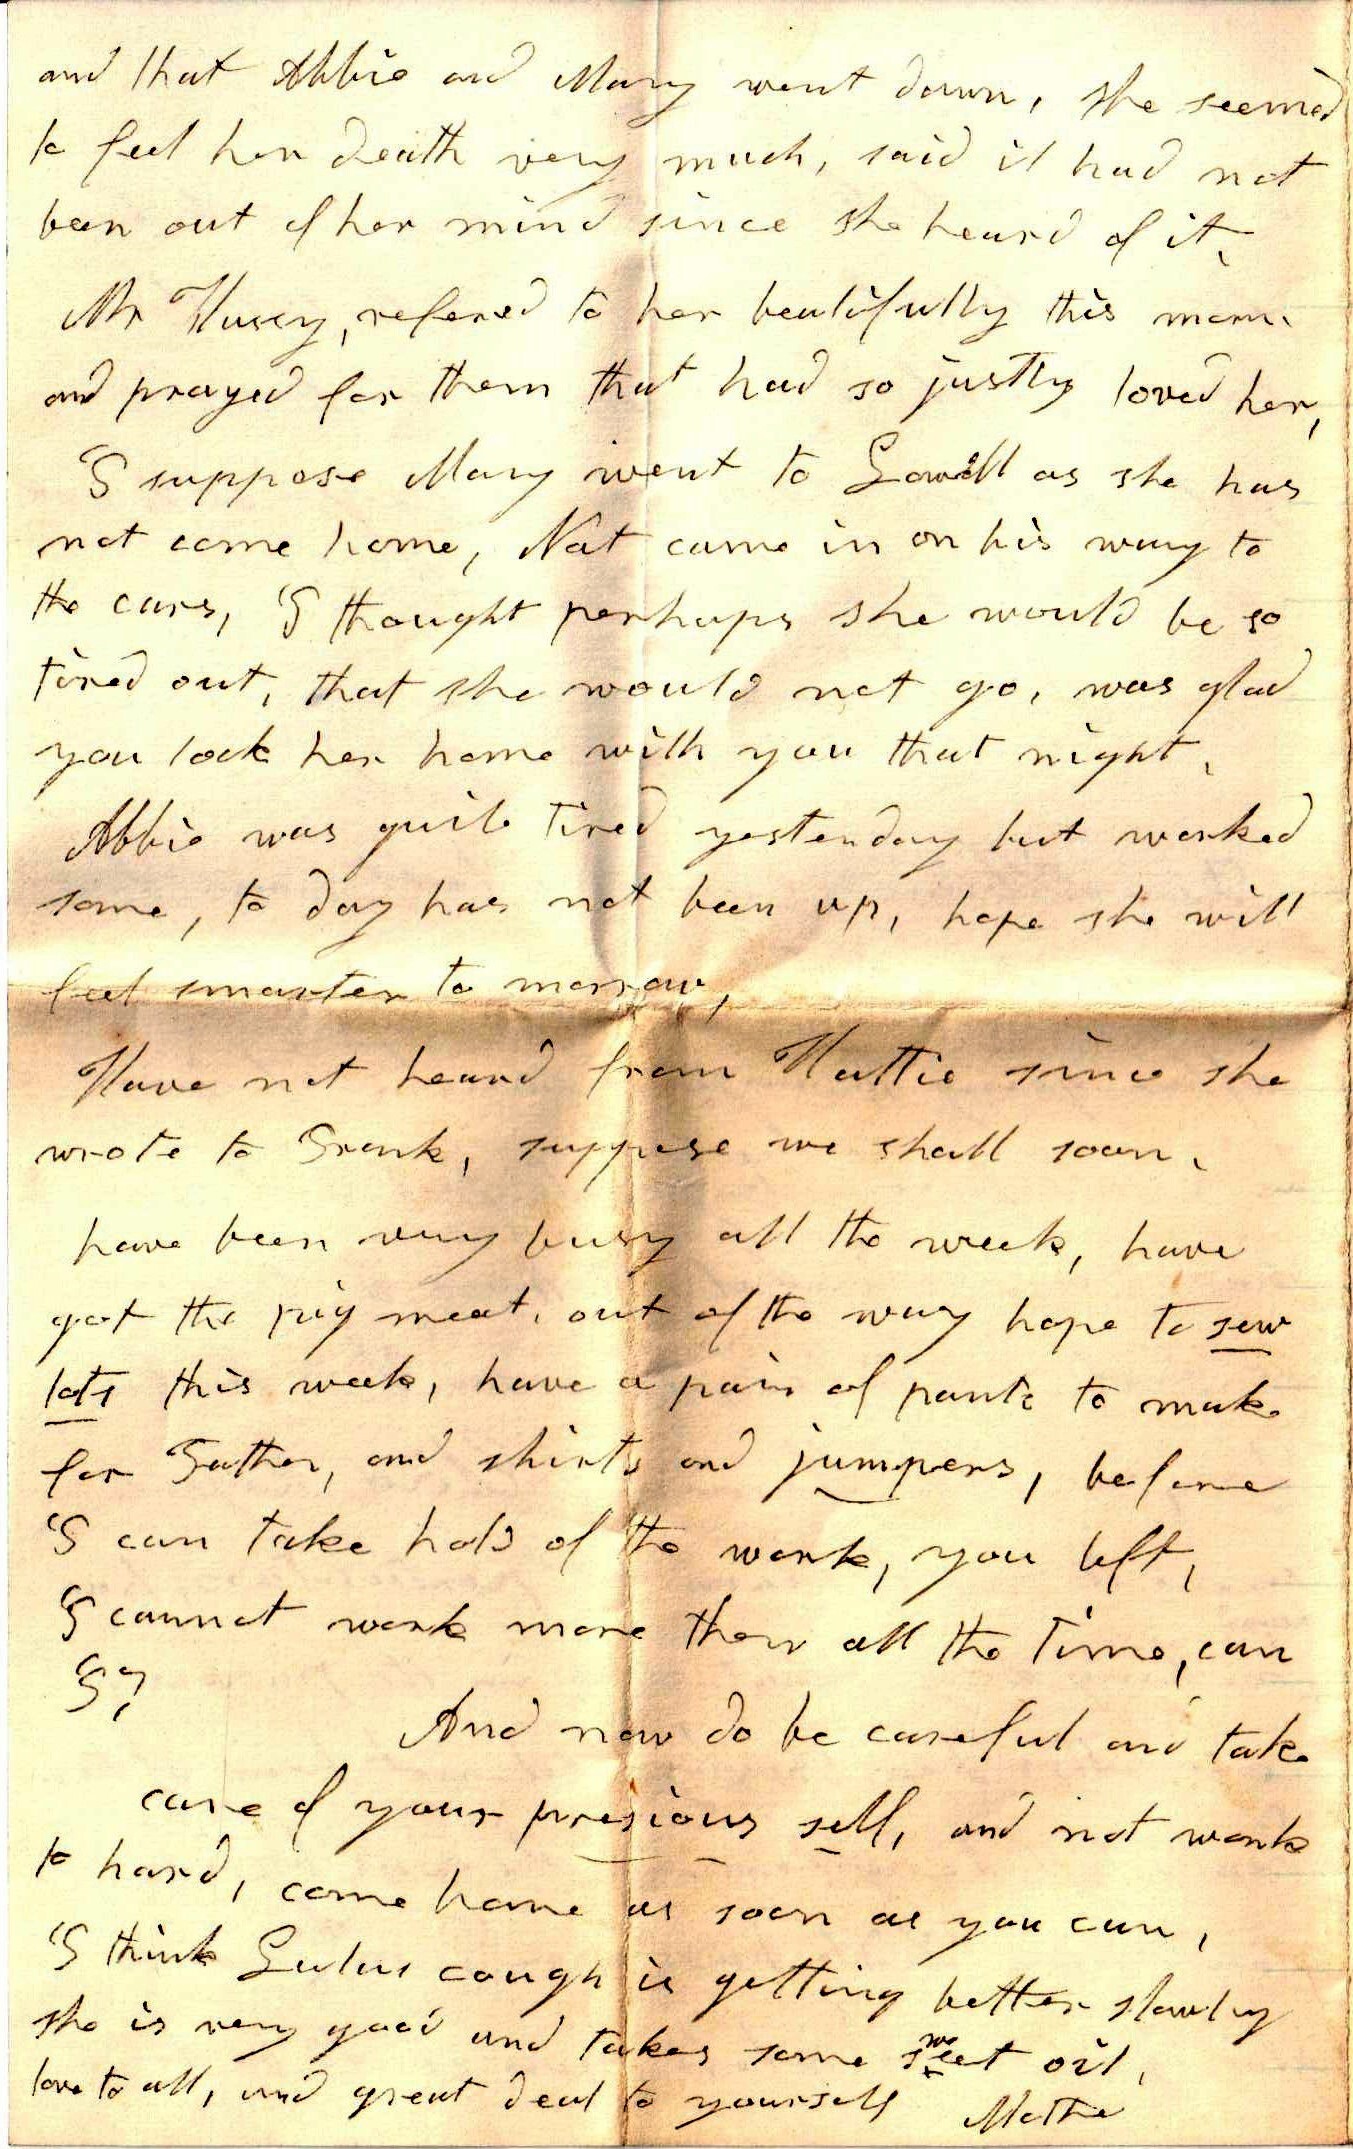 and that Abbie and Mary went down, she seemed
to feel her death very much, said it had not
been out of her mind since she heard of it,
Mr Huxey, refered to her beutifully this morn.
and prayed for them that had so justly loved her,
I suppose Mary went to Lowell as she has
not come home, Nat came in on his way to
the cars, I thought perhaps she would be so
tired out, that she would not go, was glad
you took her home with you that night,
Abbie was quite tired yesterday but worked
some, to day has not been up, hope she will
feel smarter to morrow,
Have not heard from Hattie since she
wrote to Frank, suppose we shall soon,
have been very busy all the week, have
got the pig meat, out of the way hope to sew
lots this week, have a pair of pants to make
for Father, and shirts and jumpers, before
I can take hold of the work, you left,
I cannot work more then all the time, can
I?
And now do be careful and take
care of your presious self, and not work
to hard, come home as soon as you can,
I think Lulus cough is getting better slowly
she is very good and takes some sweet oil,
love to all, and great deal to yourself Mother